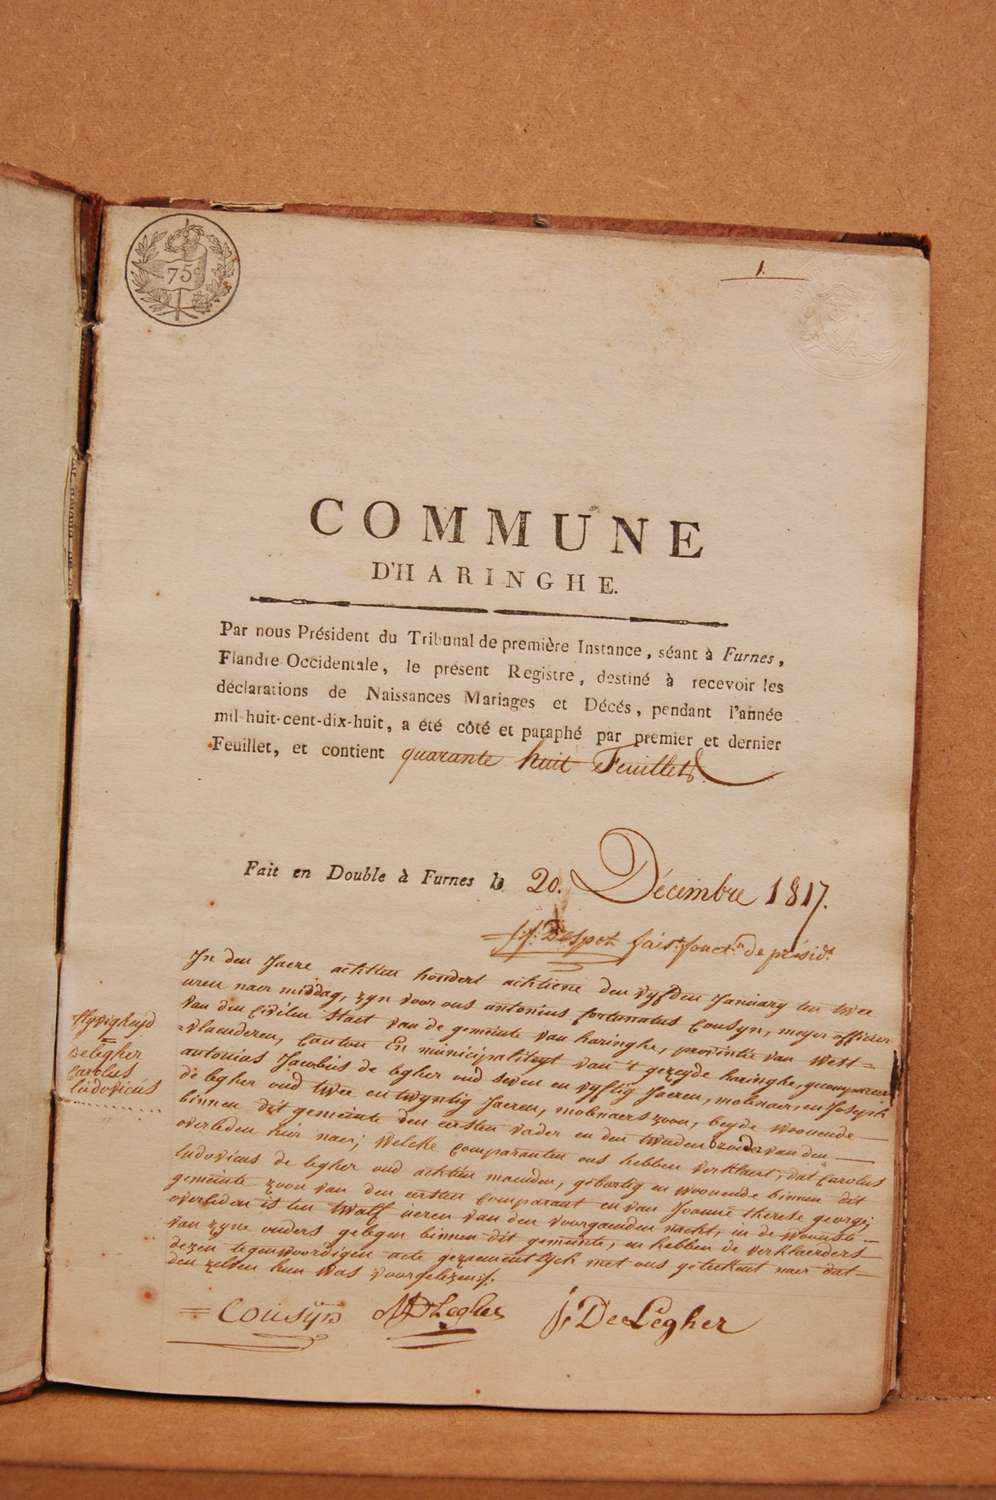 75
1.
COMMUNE
D'HARINGHE.
Par nous Président du Tribunal de première Instance, séant à Furnes,
Flandre Occidentale, le présent Registre, destiné à recevoir les
déclarations de Naissances Mariages et Décés, pendant l'année
mil-huit-cent-dix-huit, a été côté et paraphé par premier et dernier
Feuillet, et contient quarante huit Feuillets
Fait en Double à Furnes le 20. Décembre 1817.
Despot fais.t fonct.n de présid.t
In den Jaere achttien hondert achtiene den vyfden January ten twee
uren naer middag, zyn voor ons antonius fortunatus Cousyn, meyer officier
van den Civilen Staet van de gemeente van haringhe, provintie van West-
vlaenderen, Canton En municipaliteyt van 't gezeyde haringhe, gecompareert
antonius Jacobus de legher oud seven en vyftig Jaeren, molenaer, en Joseph
de legher oud twee en twyntig Jaeren, molenaers zoon, beyde woonende
binnen dit gemeente den eersten vader en den tweeden broeder van den
overleden hier naer; Welcke Comparanten ons hebben verklaert, dat Carolus
ludovicus de legher oud achtien maenden, gebortig en woonende binnen dit
gemeente zoon van den eersten Comparant en van Joanne therese george;
overleden is ten twalf ueren van den voorgaenden nacht, in de Wooninge
van zyne ouders gelegen binnen dit gemeente, en hebben de verklaerders
dezen tegenwoordigen acte gezaementlyck met ons geteekent naer dat
den zelven hun was voorgelezen.
delegher
carolus
ludovicus
Cousyn DLegher j: De Legher